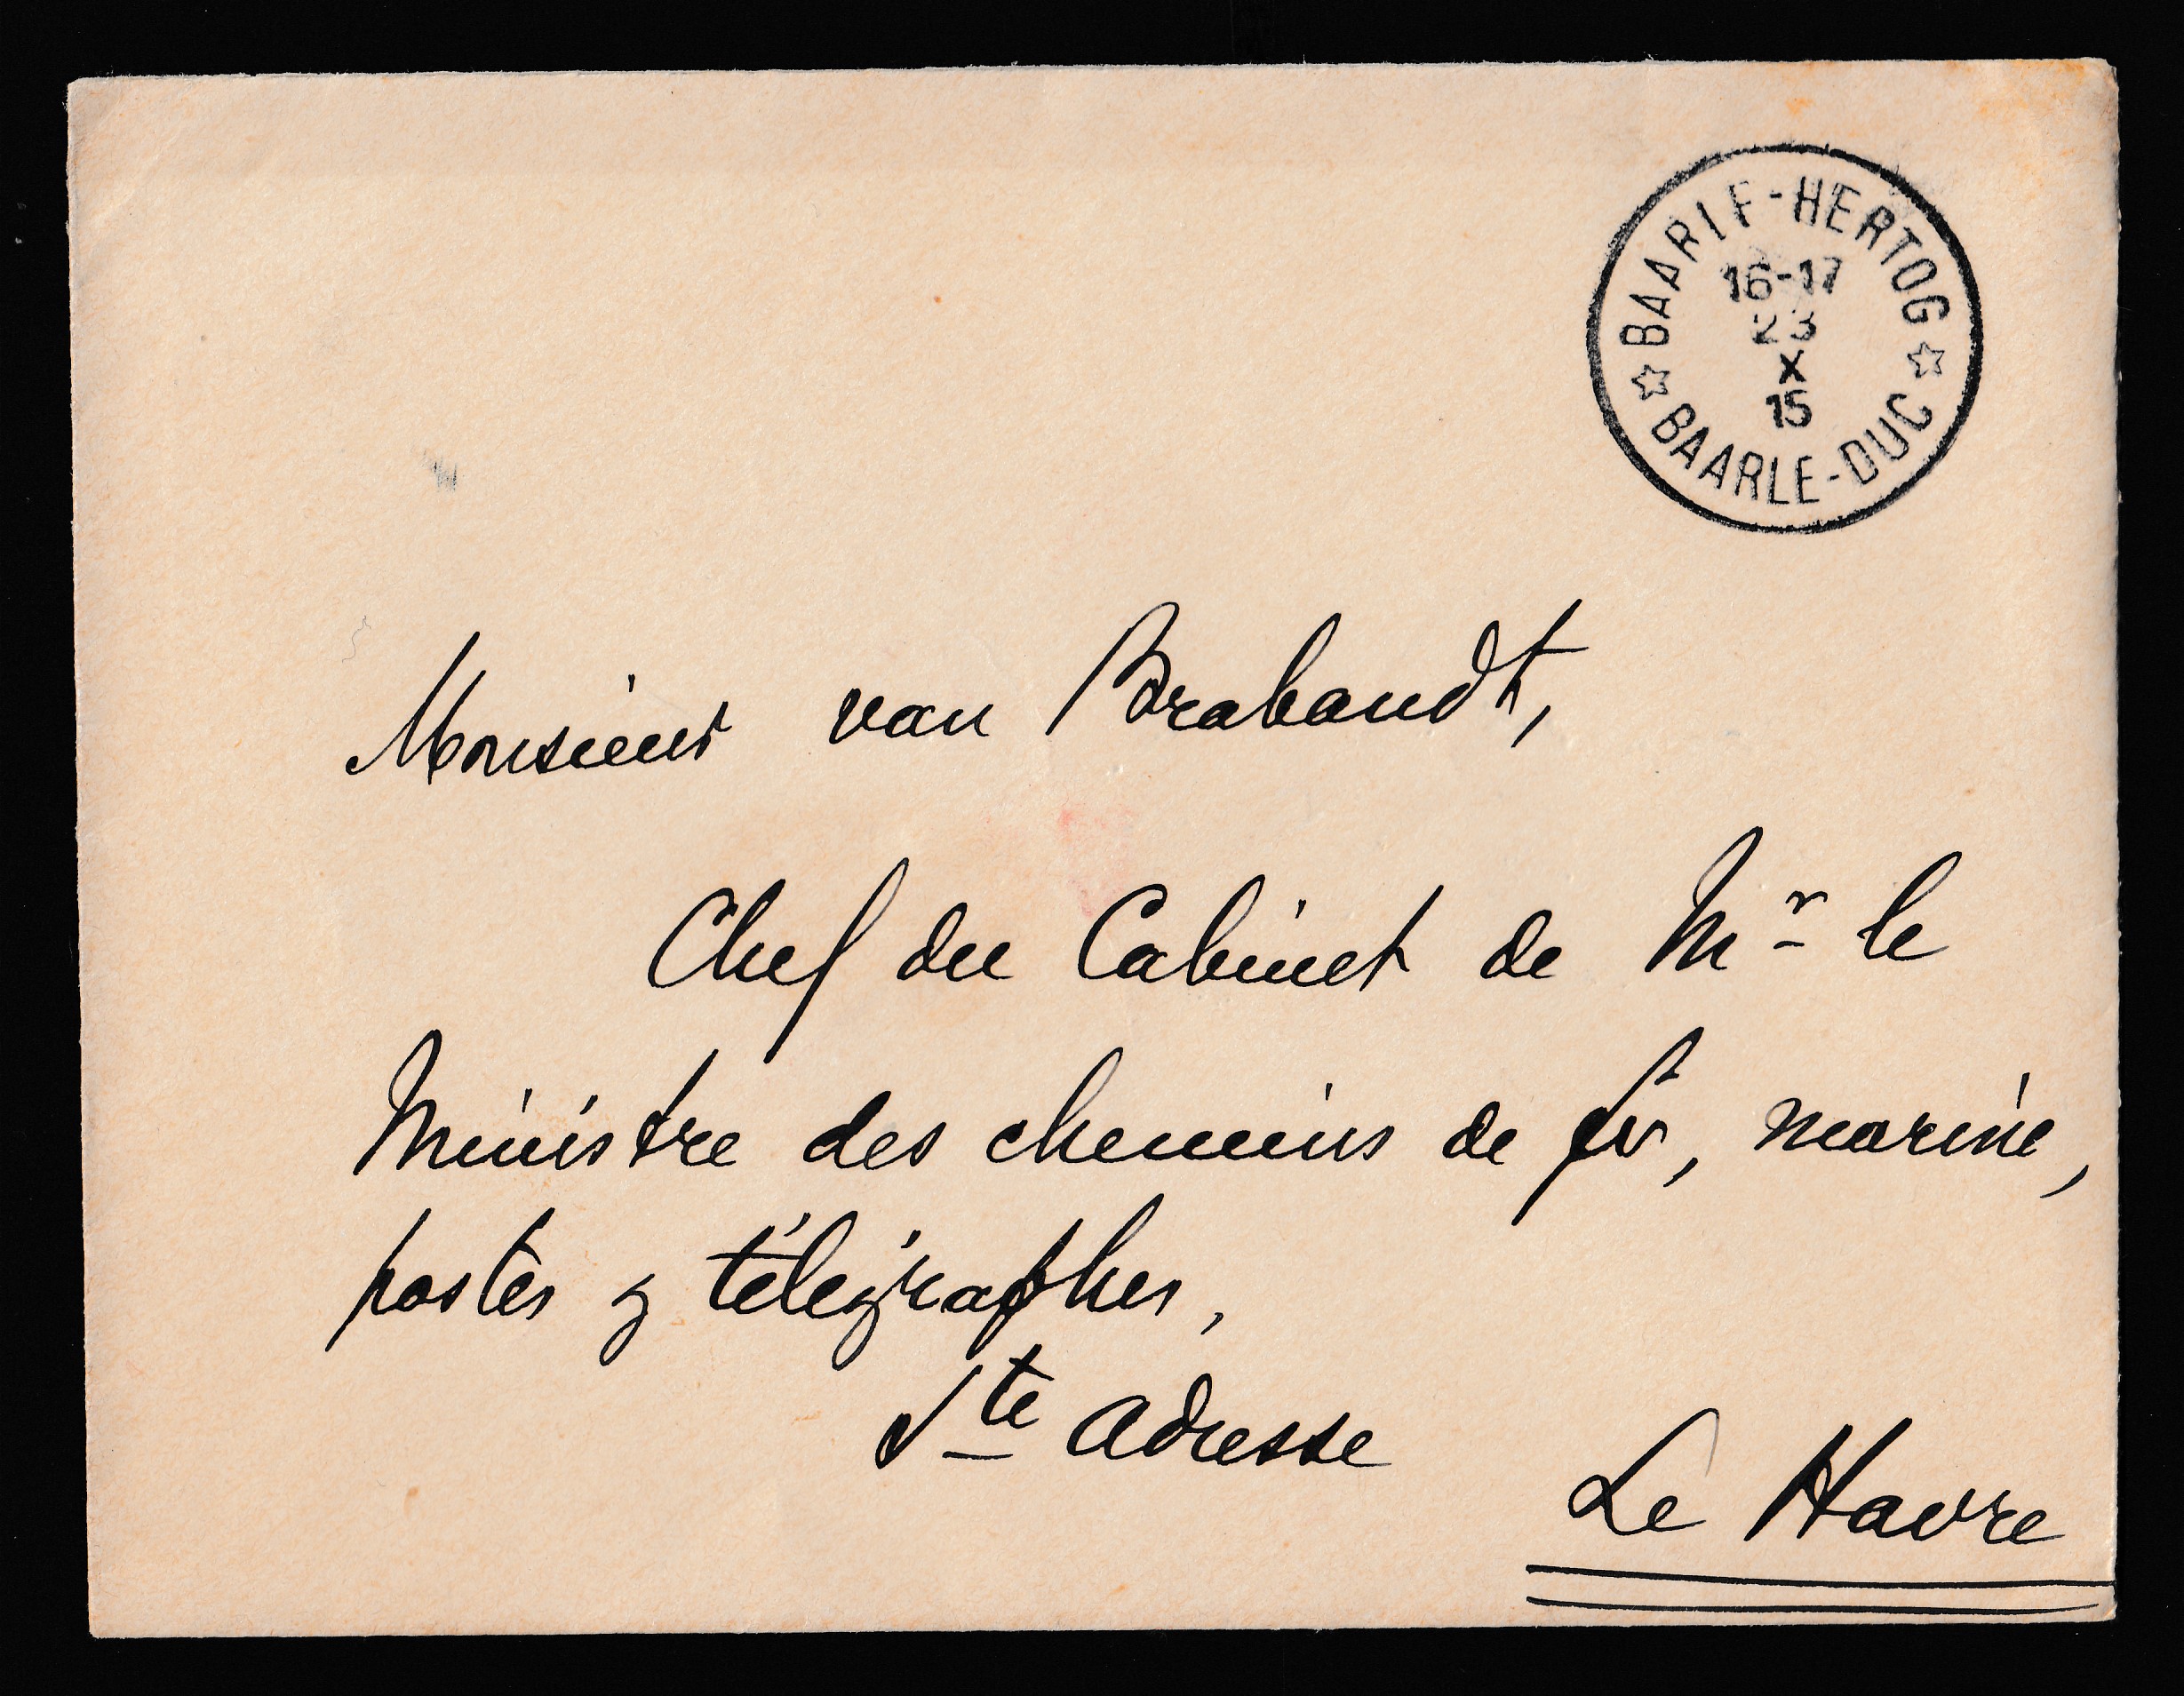 BAARLE-HERTOG
16-17
23
X
15
☆ BAARLE-DUC ☆
Monsieur van Brabandt,
Chef du Cabinet de Mr le
Ministre des chemins de fer, marine,
postes & télégraphes,
Ste Adresse
Le Havre